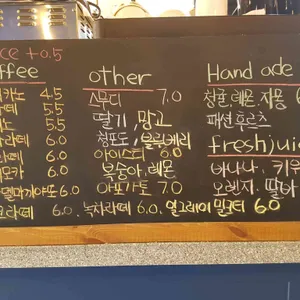 ice +0.5
ffee
other
Hand ade
리카노 4.5
라떼 5.5
치노 5.5
라떼 6.0
모카 6.0
라멜마끼야또 6.0
스무디 7.0
딸기, 망고
청포도, 블루베리
아이스티 6.0
복숭아, 레몬
아포가토 7.0
청귤, 레몬, 자몽 6
패션후르츠
freshjui
바나나, 키위
오렌지, 딸기
라떼 6.0. 녹차라떼 6.0. 얼그레이 밀크티 6.0